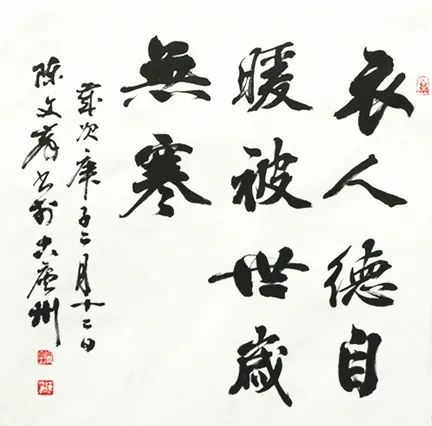 衣人德自
暖被世歲
無寒
歲次庚子二月十二日
陈文 书於古庐州